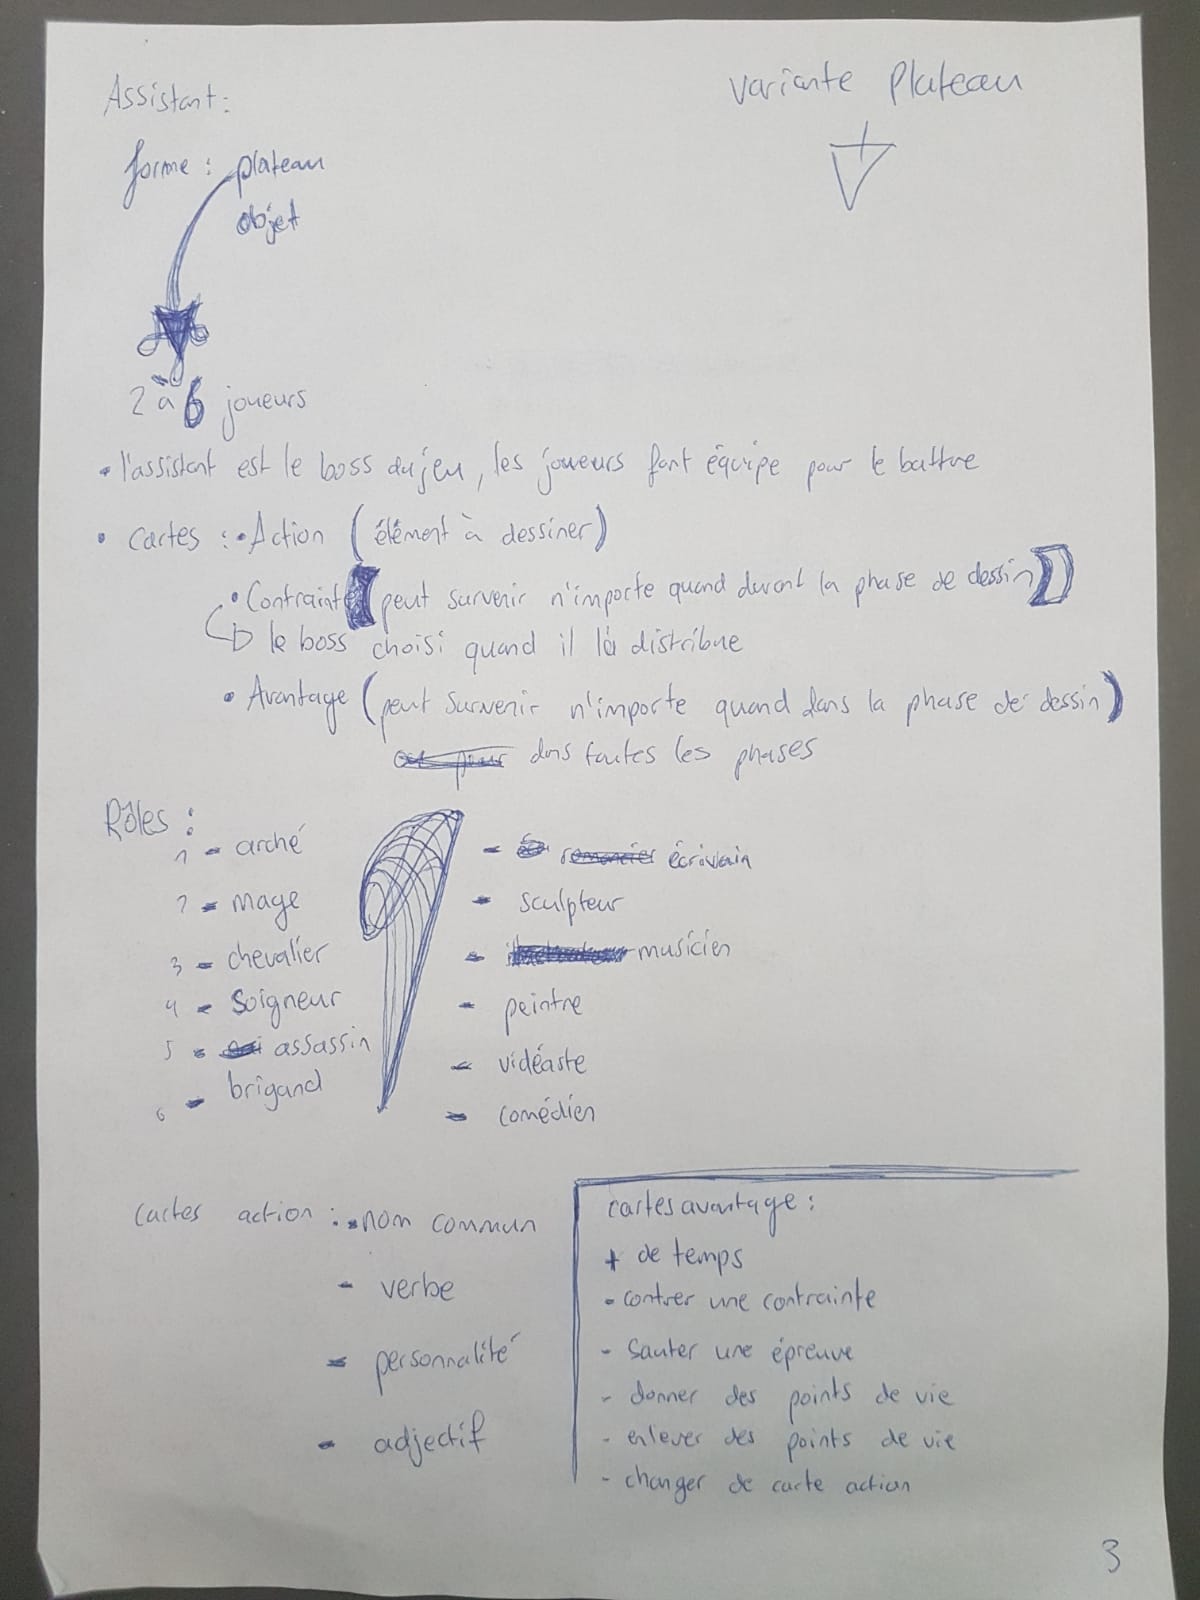 Assistant:
variante plateau
forme : plateau
objet
2 à 6 joueurs
• l'assistant est le boss du jeu, les joueurs font équipe pour le battre
• cartes : • Action (élément à dessiner)
• Contrainte (peut survenir n'importe quand durant la phase de dessin)
le boss choisi quand il la distribue
• Avantage (peut survenir n'importe quand dans la phase de dessin)
dans toutes les phases
Rôles :
1 - arché
2 - mage
3 - chevalier
4 - soigneur
5 - assassin
6 - brigand
- écrivain
- sculpteur
- musicien
- peintre
- vidéaste
- comédien
cartes action : - nom commun
- verbe
- personnalité
- adjectif
cartes avantage :
+ de temps
- contrer une contrainte
- sauter une épreuve
- donner des points de vie
- enlever des points de vie
- changer de carte action
3